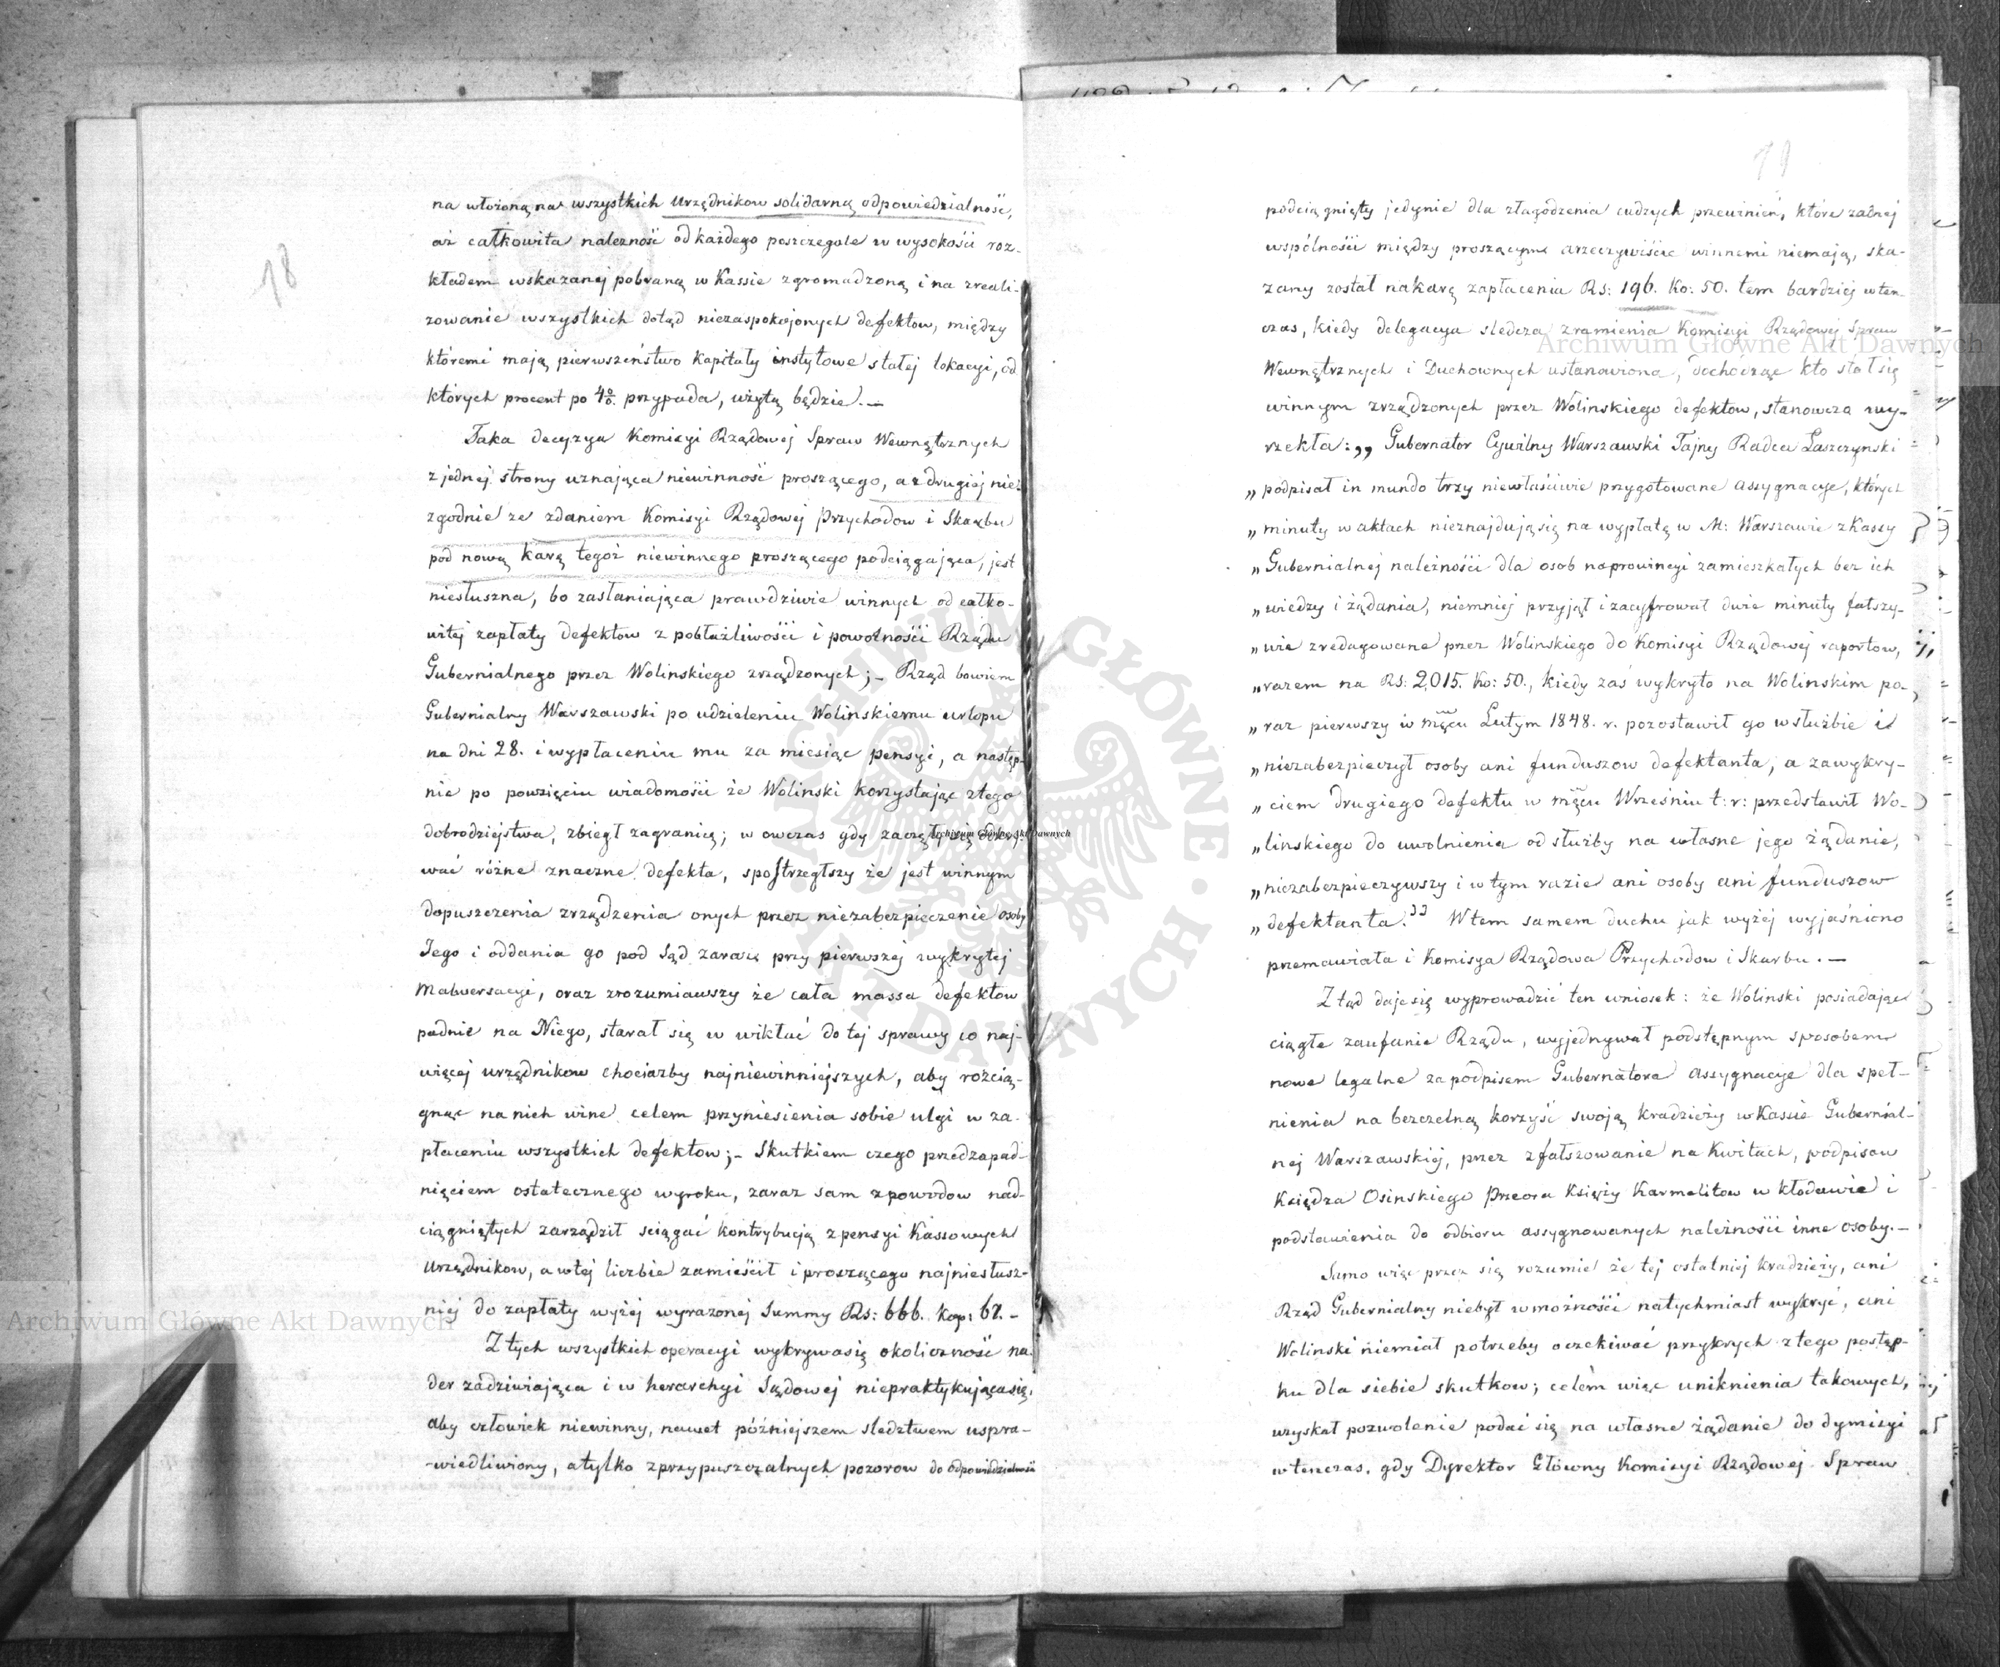 18
na włożoną na wszystkich Urzędnikow solidarną odpowiedzialność,
aż całkowita należność od każdego poszczegole w wysokości roz-
kładem wskazanej pobraną w Kassie zgromadzoną i na zreali-
zowanie wszystkich dotąd niezaspokojonych defektow, między
któremi mają pierwszeństwo Kapitały instytowe stałej lokacyi, od
których procent po 4% przypada, użytą będzie. —
Taka decyzya Komisyi Rządowej Spraw Wewnętrznych
z jednej strony uznająca niewinność proszącego, a z drugiej nie-
zgodnie ze zdaniem Komisyi Rządowej Przychodow i Skarbu
pod nową karą tegoż niewinnego proszącego podciągająca, jest
niesłuszna, bo zasłaniająca prawdziwie winnych od całko-
witej zapłaty defektow z pobłażliwości i powolności Rządu
Gubernialnego przez Wolinskiego zrządzonych; – Rząd bowiem
Gubernialny Warszawski po udzieleniu Wolinskiemu urlopu
na dni 28. i wypłaceniu mu za miesiąc pensyi, a następ-
nie po powzięciu wiadomości że Wolinski korzystając z tego
dobrodziejstwa, zbiegł zagranicę; w owczas gdy zaczęły się odkry-
wać różne znaczne defekta, spostrzegłszy że jest winnym
dopuszczenia zrządzenia onych przez niezabezpieczenie osoby
Jego i oddania go pod Sąd zaraz przy pierwszej wykrytej
Malwersacyi, oraz zrozumiawszy że cała massa defektow
padnie na Niego, starał się w wikłać do tej sprawy co naj-
więcej urzędnikow chociażby najniewinniejszych, aby rozcią-
gnąć na nich winę celem przyniesienia sobie ulgi w za-
płaceniu wszystkich defektow; – Skutkiem czego przed zapad-
nięciem ostatecznego wyroku, zaraz sam z powodow nad-
ciągniętych zarządził sciągać kontrybucją z pensyi Kassowych
Urzędnikow, a w tej liczbie zamieścił i proszącego najniesłusz-
niej do zapłaty wyżej wyrażonej Summy Rs: 666. Kop: 67. –
Z tych wszystkich operacyi wykrywa się okoliczność na-
der zadziwiająca i w herarchyi Sądowej niepraktykująca się,
aby człowiek niewinny, nawet późniejszem sledztwem uspra-
-wiedliwiony, a tylko z przypuszczalnych pozorow do odpowiedzialności
19
podciągnięty jedynie dla złagodzenia cudzych przewinień, które żadnej
wspólności między proszącym a rzeczywiście winnemi niemają, ska-
zany został na karę zapłacenia Rs: 196. Ko: 50. tem bardziej wten-
czas, kiedy delegacya sledcza z ramienia Komisyi Rządowej Spraw
Wewnętrznych i Duchownych ustanowiona, dochodząc kto stał się
winnym zrządzonych przez Wolinskiego defektow, stanowczo wy-
rzekła: „ Gubernator Cywilny Warszawski Tajny Radca Łaszczyński
„ podpisał in mundo trzy niewłaściwie przygotowane assygnacye, których
„ minuty w aktach nieznajdują się na wypłatę w M: Warszawie z Kassy
„ Gubernialnej należności dla osob na prowincyi zamieszkałych bez ich
„ wiedzy i żądania, niemniej przyjął i zacyfrował dwie minuty fałszy-
„ wie zredagowane przez Wolinskiego do Komisyi Rządowej raportow,
„ razem na Rs: 2,015. Ko: 50., kiedy zaś wykryto na Wolinskim po
„ raz pierwszy w mścu Lutym 1848. r. pozostawił go w służbie i
„ niezabezpieczył osoby ani funduszow defektanta, a za wykry-
„ ciem drugiego defektu w mścu Wrześniu t: r: przedstawił Wo-
„ linskiego do uwolnienia od służby na własne jego żądanie,
„ niezabezpieczywszy i w tym razie ani osoby ani funduszow
„ defektanta." W tem samem duchu jak wyżej wyjaśniono
przemawiała i Komisya Rządowa Przychodow i Skarbu. —
Z tąd daje się wyprowadzić ten wniosek: że Wolinski posiadając
ciągłe zaufanie Rządu, wyjednywał podstępnym sposobem
nowe legalne za podpisem Gubernatora assygnacye dla speł-
nienia na bezczelną korzyść swoją kradzieży w Kassie Gubernial-
nej Warszawskiej, przez zfałszowanie na Kwitach, podpisow
Księdza Osinskiego Przeora Księży Karmelitow w Kłodawie i
podstawienia do odbioru assygnowanych należności inne osoby. –
Samo więc przez się rozumie że tej ostatniej kradzieży, ani
Rząd Gubernialny niebył w możności natychmiast wykryć, ani
Wolinski niemiał potrzeby oczekiwać przykrych z tego postęp-
ku dla siebie skutkow; celem więc uniknienia takowych,
uzyskał pozwolenie podać się na własne żądanie do dymisyi
wtenczas, gdy Dyrektor Główny Komisyi Rządowej Spraw
Archiwum Główne Akt Dawnych
Archiwum Główne Akt Dawnych
Archiwum Główne Akt Dawnych
ARCHIWUM GŁÓWNE AKT DAWNYCH